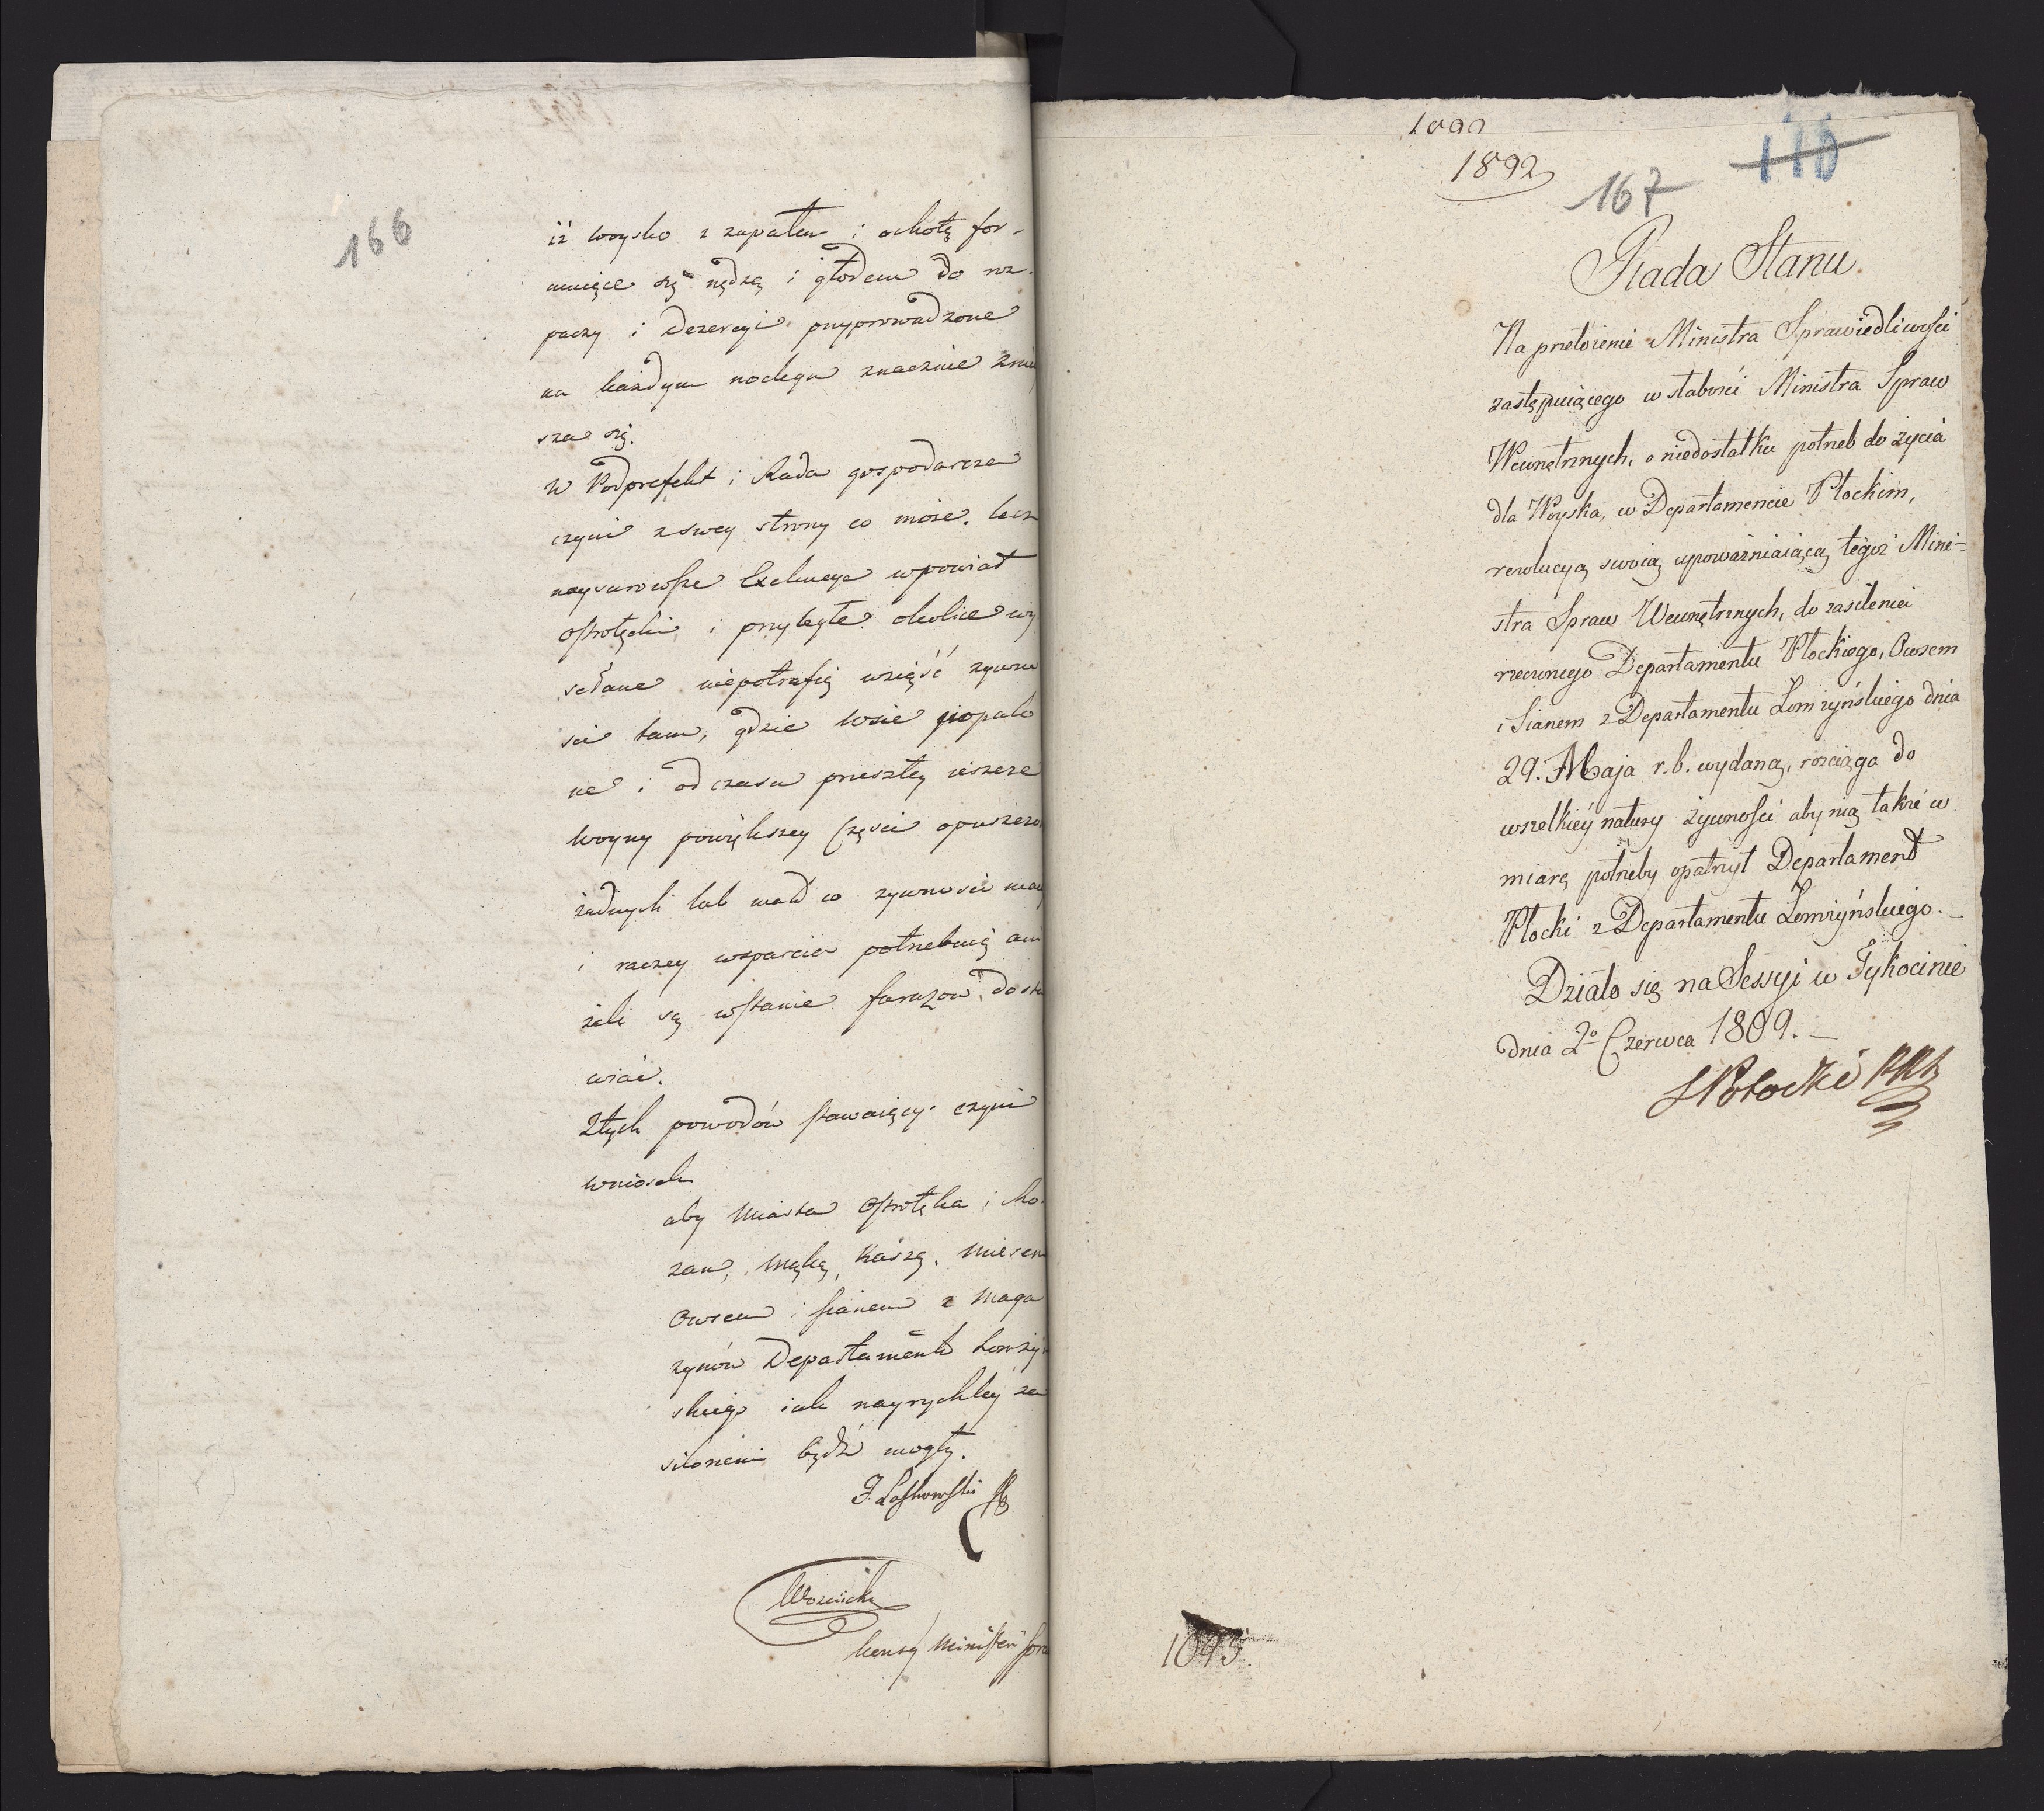 166
iż woysko z zapałem i ochotą for-
muiące się nędzą i głodem do roz-
paczy i dezercyi przyprowadzone
na każdym noclegu znacznie zmie
sza się.
W Podprefekt i Rada gospodarcza
czyni z swey strony co może. lecz
naysurowsze Exekucye w powiat
Ostrołęcki i przyległe okolice wy
słane niepotrafią wziąść żywno
ści tam, gdzie wsie popalo
ne i od czasu przeszłey ieszcze
woyny powiększey części opuszczo
żadnych lub mało co żywności maią
i raczey wsparcia potrzebuią ani
żeli są wstanie furażow dosta
wiać.
Z tych powodów stawaiący czyni
wniosek
aby Miasta Ostrołęka i Ro-
żan, Mąką, Kaszą, Mięsem
Owsem i sianem z Maga
zynów Departamentu Łomżyń
skiego iak nayrychley za
silonemi bydź mogły.
J. Łaszkowski
Woźnicki
1892
167
116
Rada Stanu
Na przełożenie Ministra Sprawiedliwości
zastępuiącego w słabości Ministra Spraw
Wewnętrznych, o niedostatku potrzeb do życia
dla Woyska, w Departamencie Płockim,
rezolucyą swoią upoważniaiącą tegoż Mini-
stra Spraw Wewnętrznych, do zasilenia
rzeczonego Departamentu Płockiego, Owsem
i Sianem z Departamentu Łomżyńskiego dnia
29. Maja r. b. wydaną, rozciąga do
wszelkiéy natury żywności aby nią także w
miarę potrzeby opatrzył Departament
Płocki z Departamentu Łomżyńskiego. _
Działo się na Sessyi w Tykocinie
dnia 2º Czerwca 1809. _
S Potocki
1095.